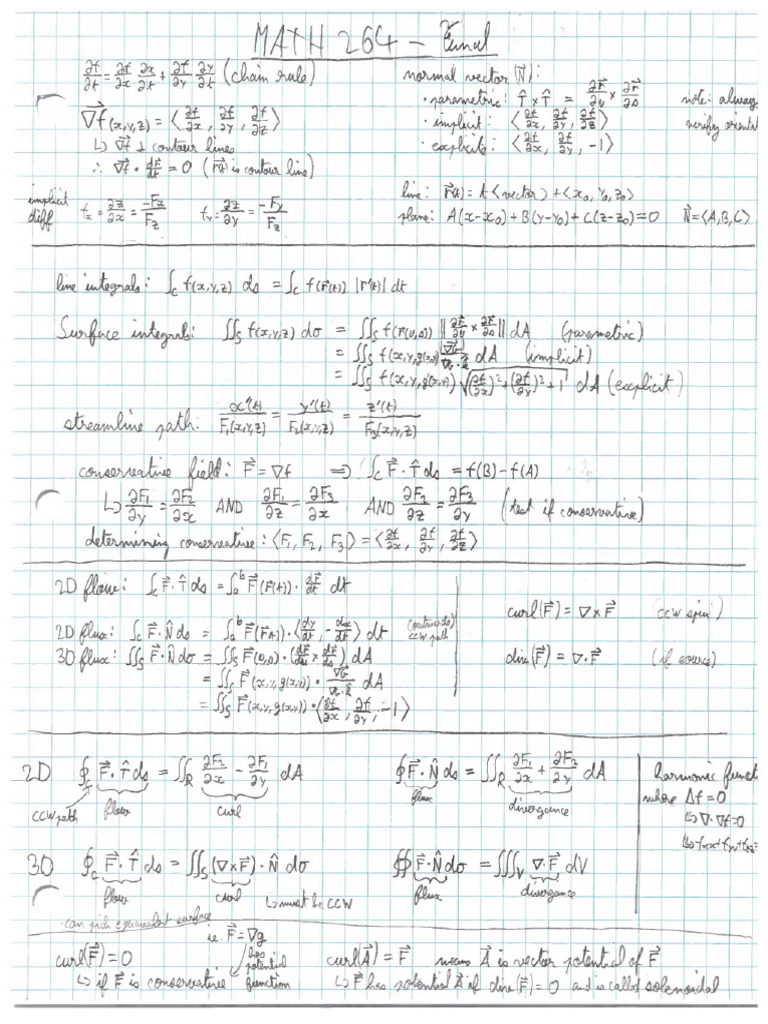 MATH 264 – Final
∂f/∂t = ∂f/∂x ∂x/∂t + ∂f/∂y ∂y/∂t (chain rule)
normal vector (N⃗):
∇⃗f(x,y,z) = ⟨∂f/∂x, ∂f/∂y, ∂f/∂z⟩
↳ ∇⃗f ⊥ contour lines
∴ ∇⃗f · dr⃗/dt = 0 (r⃗(t) is contour line)
· parametric: T̂ × T̂ = ∂r⃗/∂u × ∂r⃗/∂v
· implicit: ⟨∂f/∂x, ∂f/∂y, ∂f/∂z⟩
· explicit: ⟨∂f/∂x, ∂f/∂y, -1⟩
note: always
verify orientat
implicit diff fx = ∂z/∂x = -Fx/Fz fy = ∂z/∂y = -Fy/Fz
line: r⃗(t) = A⟨vector⟩ + ⟨x₀, y₀, z₀⟩
plane: A(x-x₀) + B(y-y₀) + C(z-z₀) = 0 N⃗ = ⟨A,B,C⟩
line integrals: ∫c f(x,y,z) ds = ∫c f(r⃗(t)) |r⃗'(t)| dt
Surface integrals: ∬s f(x,y,z) dσ = ∬s f(r⃗(u,v)) ‖∂r⃗/∂u × ∂r⃗/∂v‖ dA (parametric)
= ∬s f(x,y,g(x,y)) dA (implicit)
= ∬s f(x,y,g(x,y)) √((∂f/∂x)² + (∂f/∂y)² + 1) dA (explicit)
streamline path: x'(t)/F₁(x,y,z) = y'(t)/F₂(x,y,z) = z'(t)/F₃(x,y,z)
conservative field: F⃗ = ∇f ⇒ ∫c F⃗·T̂ds = f(B) - f(A)
↳ ∂F₁/∂y = ∂F₂/∂x AND ∂F₁/∂z = ∂F₃/∂x AND ∂F₂/∂z = ∂F₃/∂y (test if conservative)
determining conservative: ⟨F₁, F₂, F₃⟩ = ⟨∂f/∂x, ∂f/∂y, ∂f/∂z⟩
2D flow: ∫c F⃗·T̂ds = ∫ₐᵇ F⃗(r⃗(t)) · dr⃗/dt dt
2D flux: ∫c F⃗·N̂ds = ∫ₐᵇ F⃗(r⃗(t)) · ⟨dy/dt, -dx/dt⟩ dt (outwards) ccw path
3D flux: ∬s F⃗·N̂dσ = ∬s F⃗(u,v) · (dr⃗/du × dr⃗/dv) dA
= ∬s F⃗(x,y,g(x,y)) · dA
= ∬s F⃗(x,y,g(x,y)) · ⟨∂f/∂x, ∂f/∂y, -1⟩
curl(F⃗) = ∇×F⃗ (ccw spin)
div(F⃗) = ∇·F⃗ (if source)
2D ∮c F⃗·T̂ds = ∬R ∂F₂/∂x - ∂F₁/∂y dA
ccw path flow curl
∮F⃗·N̂ds = ∬R ∂F₁/∂x + ∂F₂/∂y dA
flux divergance
harmonic funct
where Δf = 0
↳ ∇·∇f = 0
3D ∮c F⃗·T̂ds = ∬s (∇×F⃗)·N̂dσ
flow curl ↳ must be CCW
∯F⃗·N̂dσ = ∭v ∇·F⃗ dV
flux divergance
· can pick equivalent surface
ie. F⃗ = ∇g
curl(F⃗) = 0
↳ if F⃗ is conservative
↳ has potential function
curl(A⃗) = F⃗ means A⃗ is vector potential of F⃗
↳ F⃗ has potential A⃗ if div(F⃗) = 0 and is called solenoidal